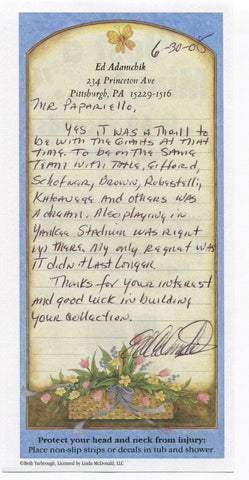 6-30-08
Ed Adamchik
234 Princeton Ave
Pittsburgh, PA 15229-1516
Mr Papariello,
Yes it was a thrill to
be with the Giants at that
time. To be on the same
team with Tittle, Gifford,
Schofner, Brown, Robostelli,
Katcavage and others was
a dream. Also playing in
Yankee Stadium was right
up there. My only regret was
it didn't last longer.
Thanks for your interest
and good luck in building
your collection.
Ed Adamchik
Protect your head and neck from injury:
Place non-slip strips or decals in tub and shower.
©Beth Yarbrough, Licensed by Linda McDonald, LLC